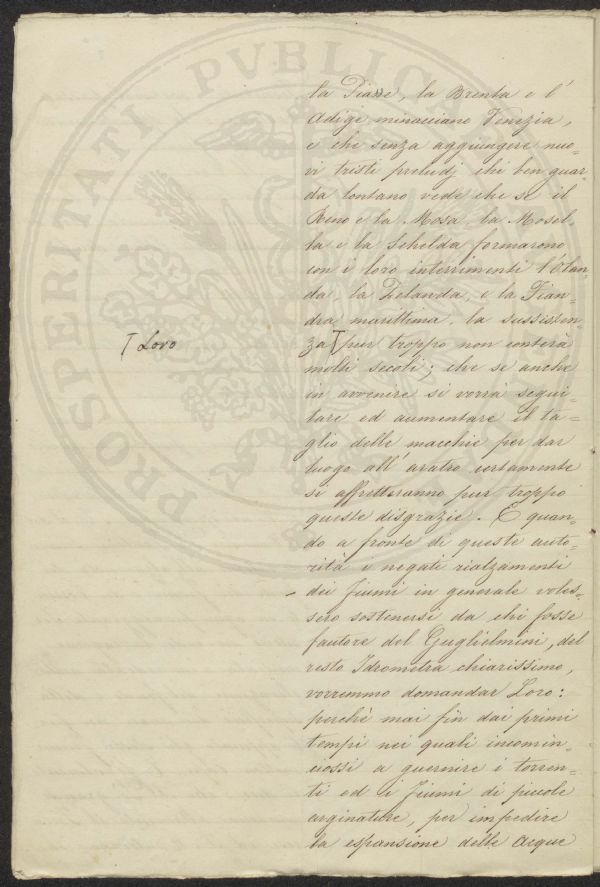 PROSPERITATI PVBLICAE
la Piave, la Brenta e l'
Adige minacciano Venezia,
e che senza aggiungere nuo=
vi tristi preludj chi ben guar
da lontano vede che se il
Reno e la Mosa, la Mosel
la e la Schelda formarono
con i loro interrimenti l'Olan
da, la Zelanda, e la Fian=
dra marittima, la sussisten=
⌈ Loro
za⌈ pur troppo non conterà
molti secoli; che se anche
in avvenire si vorrà segui=
tare ed aumentare il ta=
glio delle macchie per dar
luogo all'aratro certamente
si affretteranno pur troppo
queste disgrazie. E quan=
do a fronte di queste auto=
rità i negati rialzamenti
dei fiumi in generale voles=
sero sostenersi da chi fosse
fautore del Guglielmini, del
resto Idrometra chiarissimo,
vorremmo domandar Loro:
perchè mai fin dai primi
tempi nei quali incomin=
ciossi a guernire i torren=
ti ed i fiumi di piccole
arginature, per impedire
la espansione delle acque